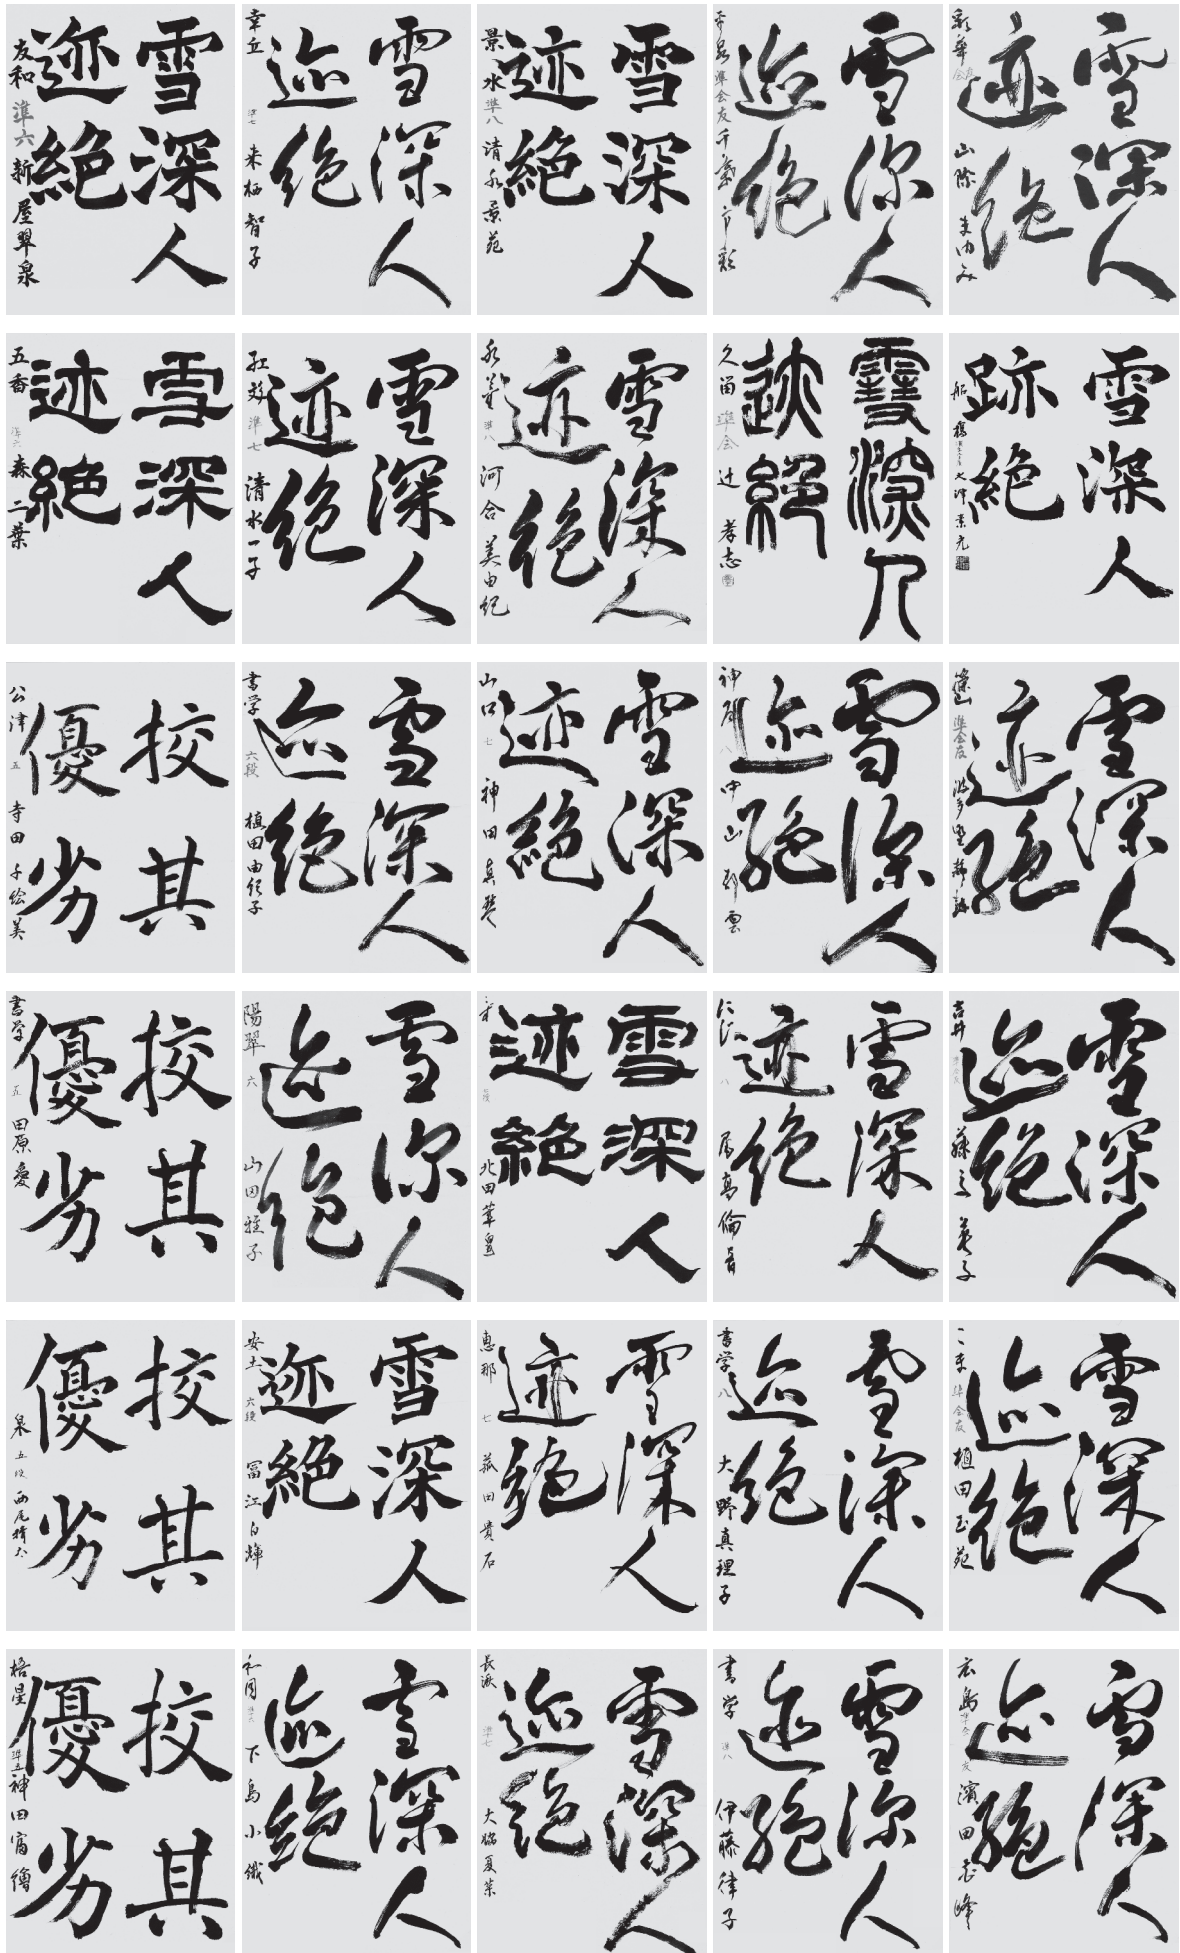 雪深人
迹絶
友和 準六 新屋翠泉
雪深人
迹絶
幸丘 準七 来栖智子
雪深人
迹絶
景水 準八 清水景苑
雪深人
迹絶
準会友 千葉
雪深人
迹絶
彩華
雪深人
迹絶
五香 準六 森二葉
雪深人
迹絶
準七 清水一子
雪深人
迹絶
準八 河合美由紀
雪深人
迹絶
久留 準会 辻孝志
雪深人
跡絶
船橋
挍其
優劣
公津 五 寺田千絵美
雪深人
迹絶
書学 六段 植田由紀子
雪深人
迹絶
山口 七 神田真琴
雪深人
迹絶
八 中山
雪深人
迹絶
準会友 波多野
挍其
優劣
書学 五 田原愛
雪深人
迹絶
陽翠 六 山田雅子
雪深人
迹絶
北田
雪深人
迹絶
八
雪深人
迹絶
吉井 準会友 藤
挍其
優劣
泉 五段 西尾
雪深人
迹絶
安土 六段 冨江白輝
雪深人
迹絶
恵那 七 菰田貴石
雪深人
迹絶
書学 八 大野真理子
雪深人
迹絶
準会友 植田玉苑
挍其
優劣
梧星 準五 神田
雪深人
迹絶
準六 下鳥小
雪深人
迹絶
長漱 準七 大脇夏菜
雪深人
迹絶
書学 準八 伊藤律子
雪深人
迹絶
広島 準会友 濱田